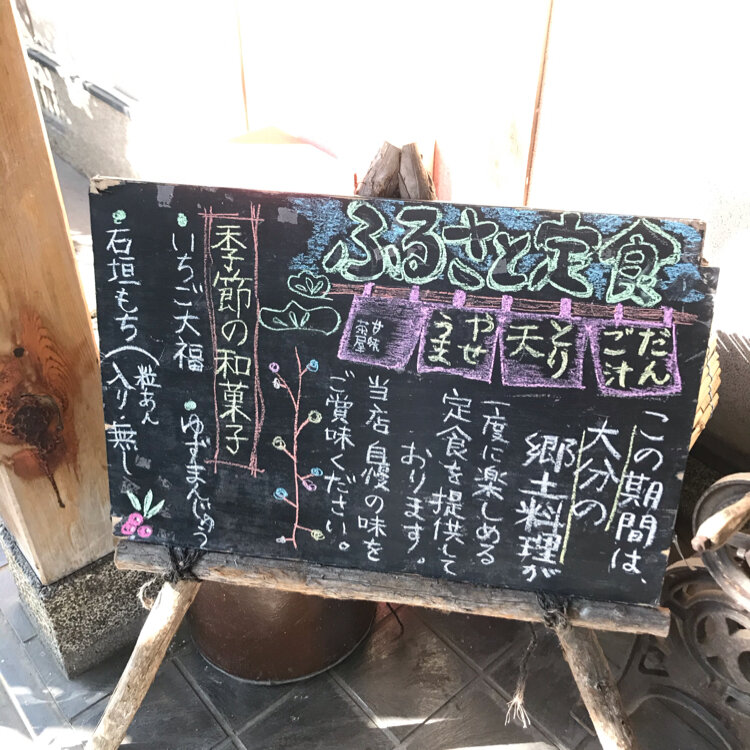 ふるさと定食
だんご汁
とり天
やせうま
甘味茶屋
この期間は、
大分の
郷土料理が
一度に楽しめる
定食を提供して
おります。
当店自慢の味を
ご賞味ください。
季節の和菓子
・いちご大福
・ゆずまんじゅう
・石垣もち(粒あん入り・無し)